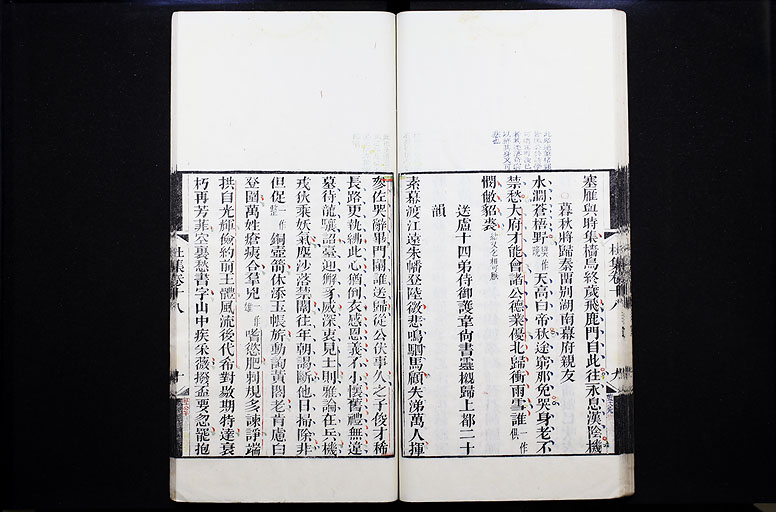 塞雁與時集檣烏終歲飛鹿門自此往永息漢陰機
暮秋將歸秦留別湖南幕府親友
水濶蒼梧野一作晚天高白帝秋途窮那免哭身老不
禁愁大府才能會諸公德業優北歸衝雨雪誰一作俱
憫敝貂裘
送盧十四弟侍御護韋尚書靈櫬歸上都二十
韻
素幕渡江遠朱幡登陸微悲鳴駟馬顧失涕萬人揮
參佐哭辭畢門闌誰送歸從公伏事久之子俊才稀
長路更執紼此心猶倒衣感恩義不小懷舊禮無違
墓待龍驤詔臺迎獬豸威深衷見士則雅論在兵機
戎狄乘妖氣塵沙落禁闈往年朝謁斷他日掃除非
但促一作整銅壺箭休添玉帳旂動詢黃閣老肯慮白
登圍萬姓瘡痍合羣兇一作雄嗜慾肥刺規多諫諍端
拱自光輝儉約前王體風流後代希對敭期特達衰
朽再芳菲空裏愁書字山中疾采薇撥盃要忽罷抱
杜集卷十八
杜集卷十八